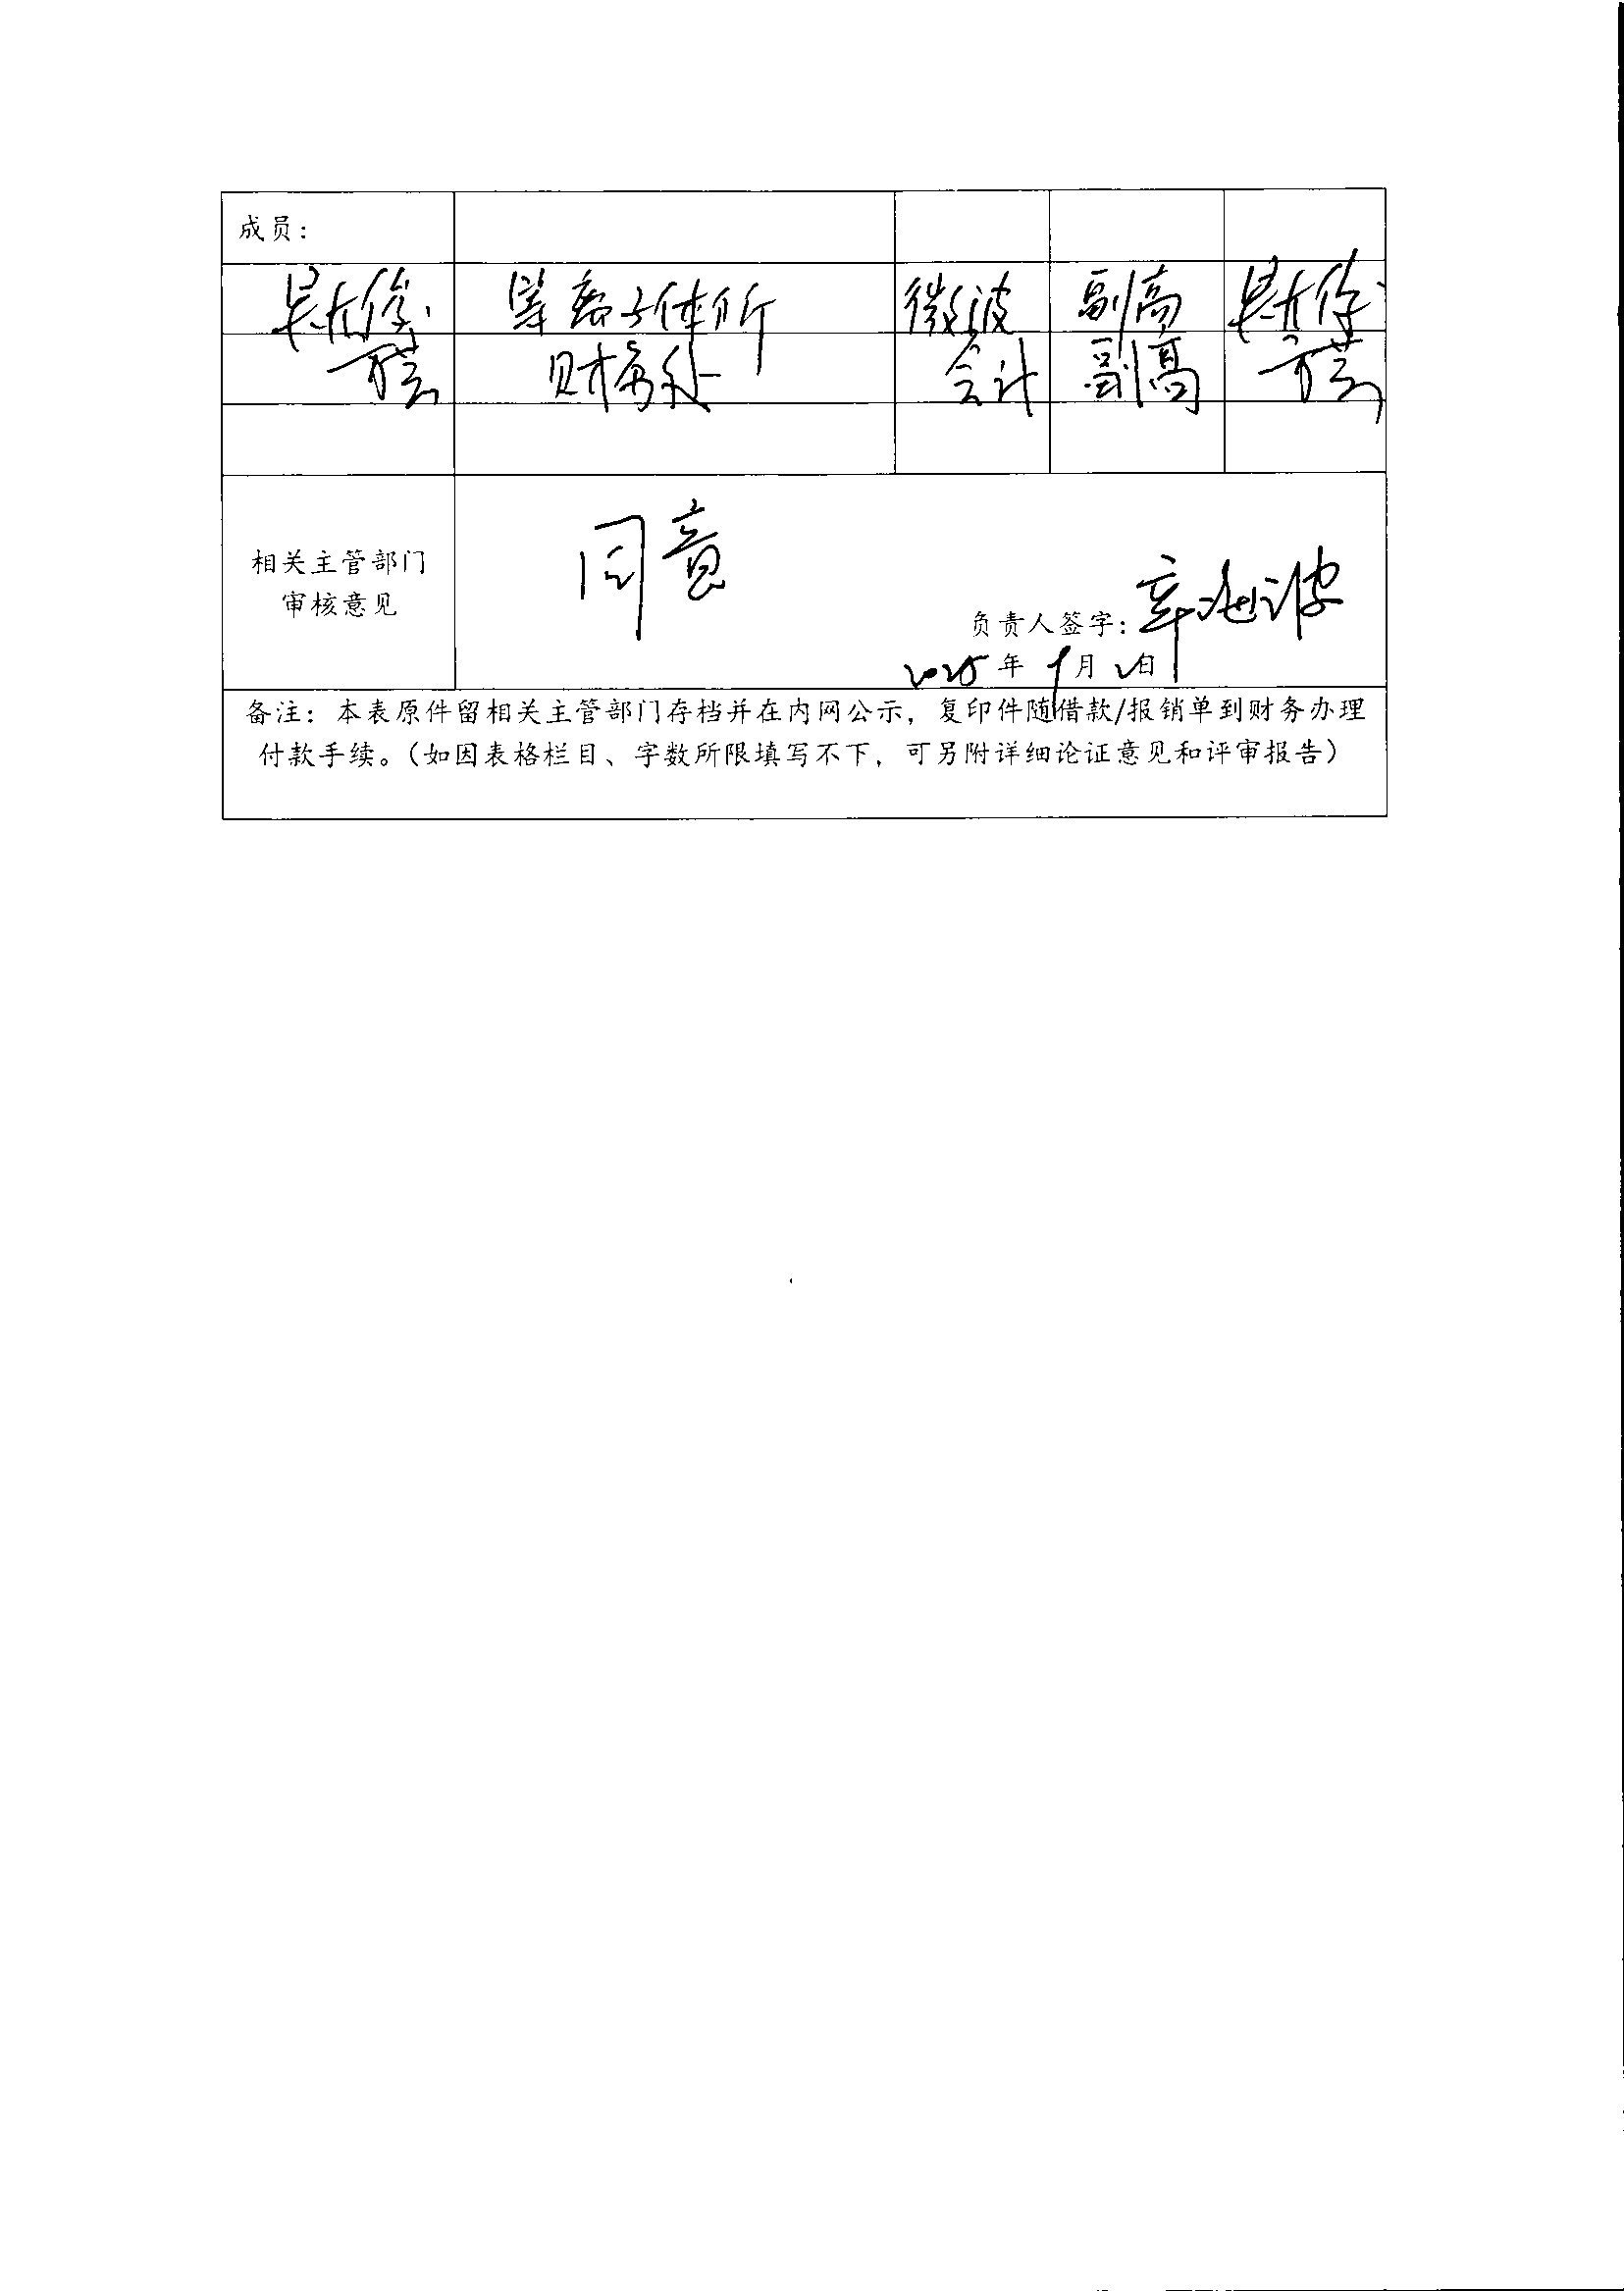 成员：
吴大俊 等离子体所 微波 副高 吴大俊
方芸 财务处 会计 副高 方芸
同意
相关主管部门
审核意见
负责人签字：
2025年9月2日
备注：本表原件留相关主管部门存档并在内网公示，复印件随借款/报销单到财务办理
付款手续。（如因表格栏目、字数所限填写不下，可另附详细论证意见和评审报告）